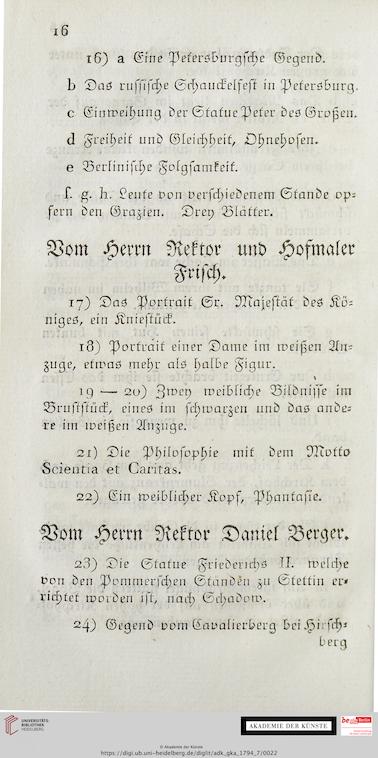 16
16) a Eine Petersburgsche Gegend.
b Das russische Schauckelfest in Petersburg.
c Einweihung der Statue Peter des Großen.
d Freiheit und Gleichheit, Ohnehosen.
e Berlinische Folgsamkeit.
f. g. h. Leute von verschiedenem Stande op-
fern den Grazien. Drey Blätter.
Vom Herrn Rektor und Hofmaler
Frisch.
17) Das Portrait Sr. Majestät des Kö-
niges, ein Kniestück.
18) Portrait einer Dame im weißen An-
zuge, etwas mehr als halbe Figur.
19 — 20) Zwey weibliche Bildnisse im
Bruststück, eines im schwarzen und das ande-
re im weißen Anzuge.
21) Die Philosophie mit dem Motto
Scientia et Caritas.
22) Ein weiblicher Kopf, Phantasie.
Vom Herrn Rektor Daniel Berger.
23) Die Statue Friederichs II. welche
von den Pommerschen Ständen zu Stettin er-
richtet worden ist, nach Schadow.
24) Gegend vom Cavalierberg bei Hirsch-
berg
UNIVERSITÄTS-
BIBLIOTHEK
HEIDELBERG
AKADEMIE DER KÜNSTE
be Berlin
© Akademie der Künste
https://digi.ub.uni-heidelberg.de/diglit/adk_gka_1794_7/0022